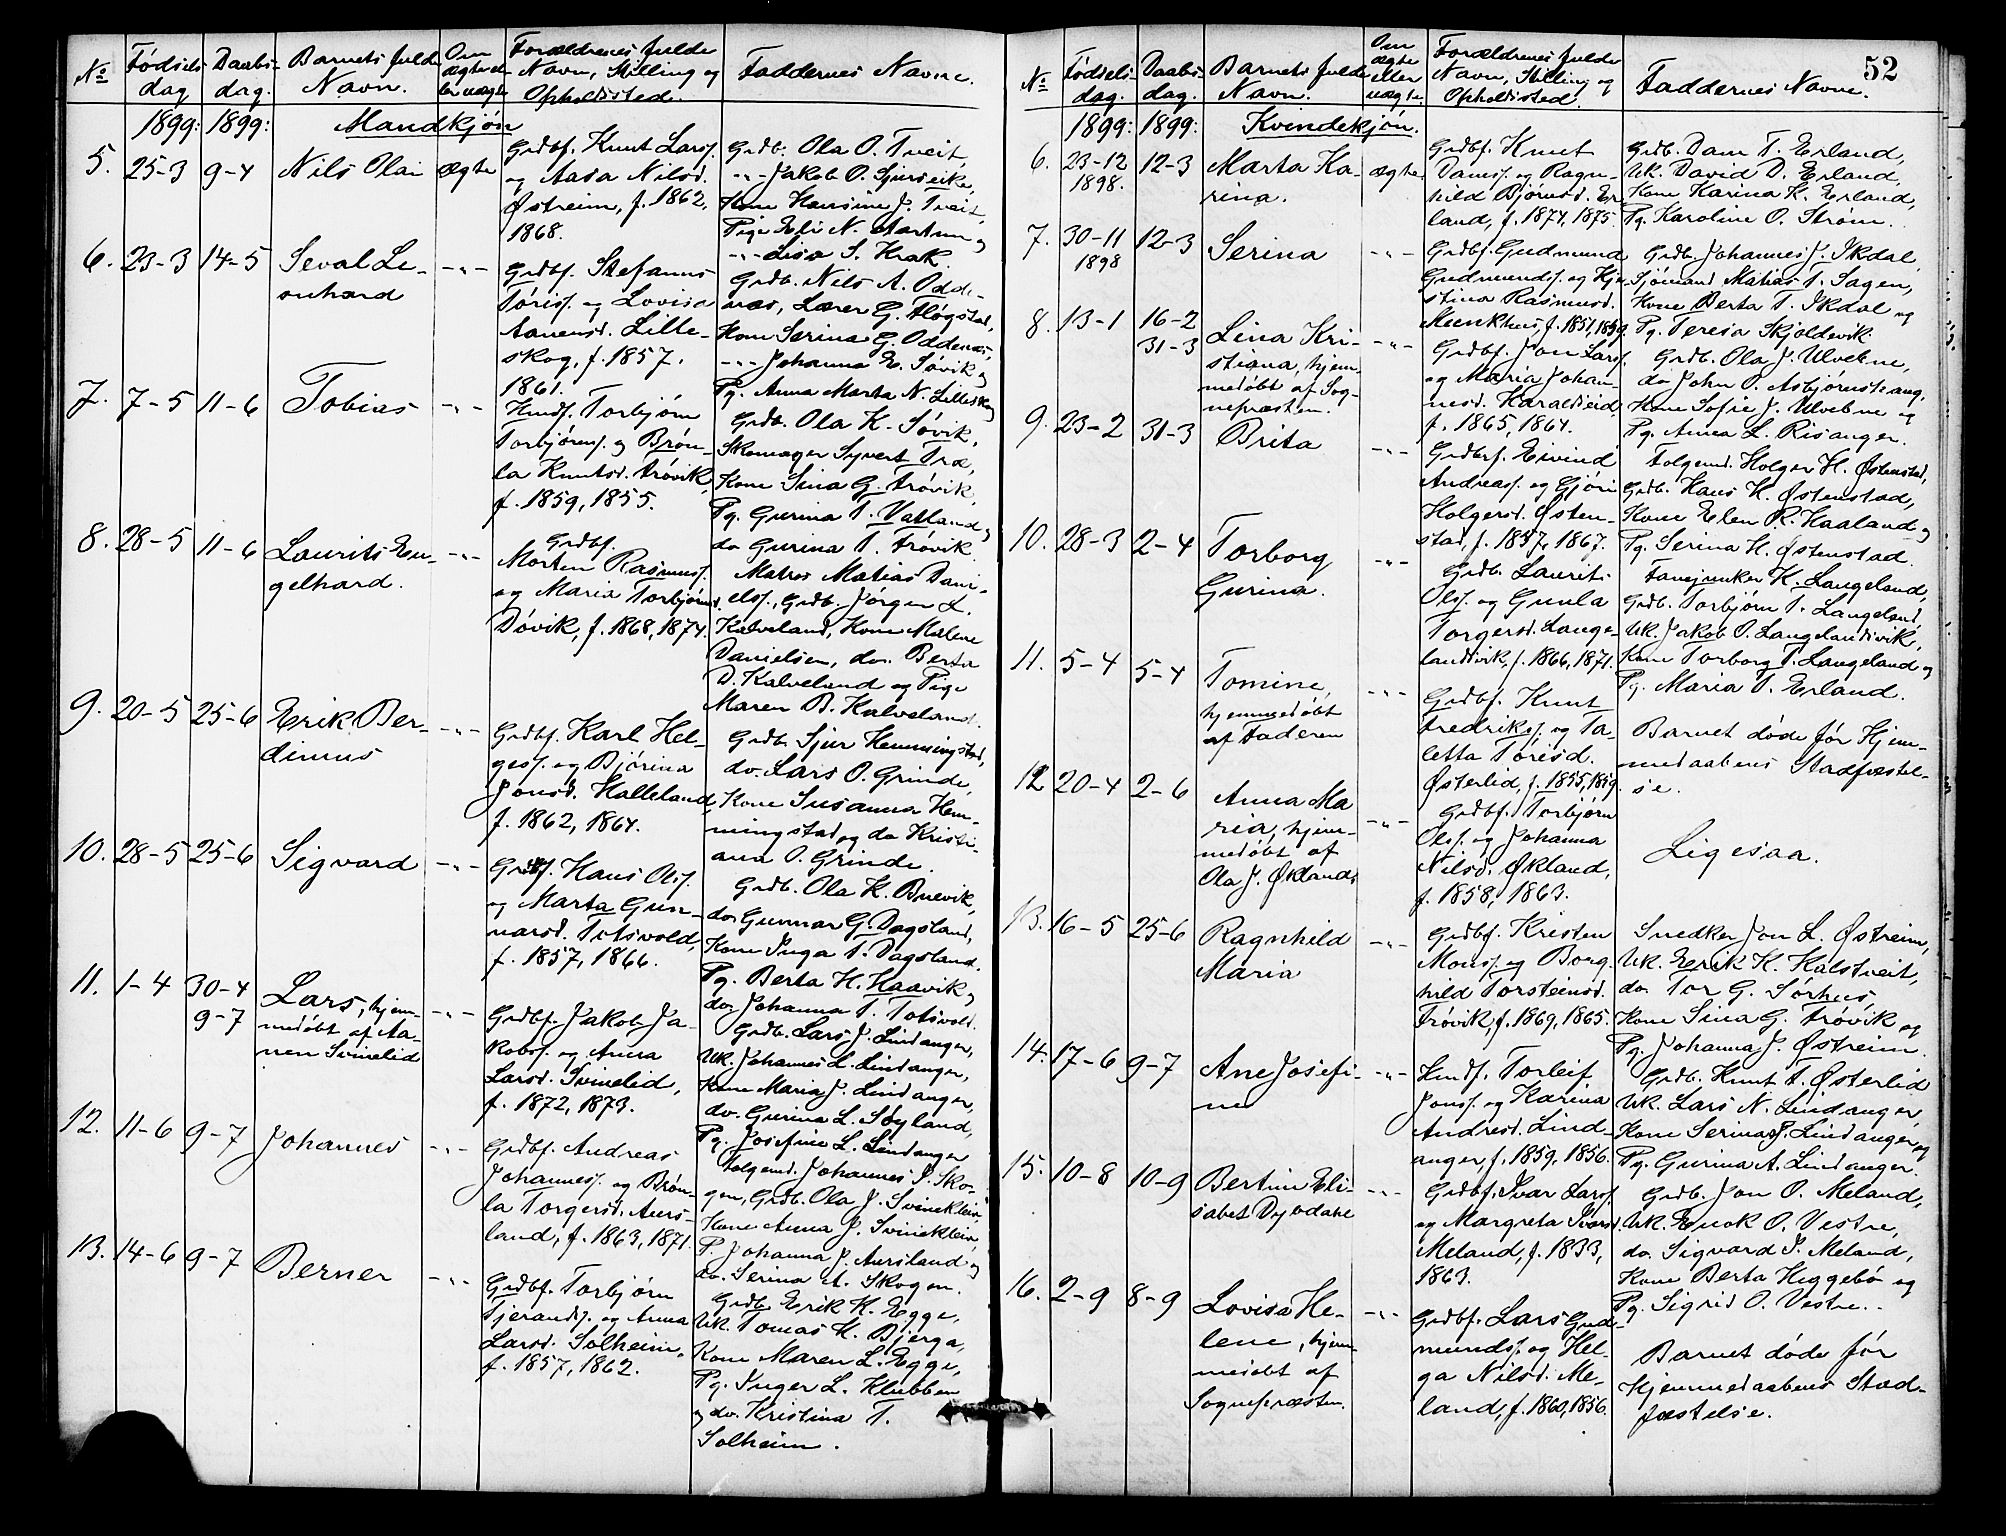 No
Fødsels-
dag
Daabs-
dag.
Barnets fulde
Navn.
Om
ægte el-
ler uægte
Forældrenes fulde
Navn, Stilling og
Opholdssted.
Faddernes Navne.
1899: 1899: Mandkjøn
5. 25-3 9-4 Nils Olai ægte
Grdbf. Knut Larss.
og Aasa Nilsd.
Østreim, f. 1862,
1868.
Grdb. Ola O. Tveit,
-"- Jakob O. Sjurseike,
Kone Hansine J. Tveit,
Pige Eli N. Aartun og
-"- Lisa S. Krak.
6. 23-3 14-5 Seval Le-
onhard -"-
Grdbf. Stefanus
Tøriss. og Lovisa
Aanensd. Lille-
skog, f. 1857.
1861.
Grdb. Nils A. Odde-
næs, Lærer G. Fløgstad,
Kone Serina G. Oddenæs,
-"- Johanna E. Søvik og
Pg. Anna Marta N. Lilleskog
7. 7-5 11-6 Tobias -"-
Hmdf. Torbjørn
Torbjørns. og Brøn-
la Knutsd. Frøvik,
f. 1859, 1855.
Grdb. Ola K. Søvik,
Skomager Syvert Træ,
Kone Sina G. Frøvik,
Pg. Gurina T. Vatland og
do Gurina T. Frøvik.
8. 28-5 11-6 Laurits En-
gelhard. -"-
Grdbf.
Morten Rasmuss.
og Maria Torbjørnsd.
Døvik, f. 1868, 1874.
Matros Matias Dani-
elss., Grdb. Jørgen L.
Kalveland, Kone Malene
Danielsen, do. Berta
D. Kalveland og Pige
Maren B. Kalveland.
9. 20-5 25-6 Erik Ber-
dinus -"-
Grdbf. Karl Hel-
gess. og Bjørina
Jonsd. Halleland,
f. 1862, 1864.
Grdb. Sjur Hemmingstad,
do. Lars O. Grinde,
Kone Susanna Hem-
mingstad og do Kristi-
ana O. Grinde.
10. 28-5 25-6 Sigvard -"-
Grdbf. Hans Olss.
og Marta Gun-
narsd. Totsvold,
f. 1857, 1866.
Grdb. Ola K. Buevik,
do Gunnar G. Dagsland,
Kone Inga T. Dagsland.
Pg. Berta H. Haavik og
do Johanna T. Totsvold.
11. 1-4 30-4
9-7
Lars, hjem-
medøbt af Aa-
nen Svinelid -"-
Grdbf. Jakob Ja-
kobs. og Anna
Larsd. Svinelid,
f. 1872, 1873.
Grdb. Lars J. Lindanger,
Uk. Johannes L. Lindanger,
Kone Maria J. Lindanger,
do. Gurina L. Søyland,
Pg. Josefine L. Lindanger
12. 11-6 9-7 Johannes -"-
Grdbf. Andreas
Johanness. og Brøn-
la Torgersd. Aurs-
land, f. 1863, 1871.
Folgemd. Johannes P. Sko-
gen, Grdb. Ola J. Svinekleiv,
Kone Anna J. Svinekleiv,
P. Johanna J. Aursland og
do. Serina A. Skogen.
13. 14-6 9-7 Berner -"-
Grdbf. Torbjørn
Tjerands. og Anna
Larsd. Solheim,
f. 1857, 1862.
Grdb. Erik K. Egge,
Uk. Tomas K. Bjerga,
Kone Maren L. Egge,
Pg. Inger L. Klubben
og do. Kristina T.
Solheim.
52
No
Fødsels-
dag.
Daabs-
dag.
Barnets fulde
Navn.
Om
ægte
eller
uægte
Forældrenes fulde
Navn, Stilling og
Opholdssted.
Faddernes Navne.
1899: 1899: Kvindekjøn.
6. 23-12
1898.
12-3 Marta Ka-
rina. ægte.
Grdbf. Knut
Daness. og Ragn-
hild Bjørnsd. Er-
land, f. 1874, 1875.
Grdb. Dane T. Erland,
Uk. David D. Erland,
Kone Karina K. Erland,
Pg. Karoline O. Strøm.
7. 30-11
1898
12-3 Serina -"-
Grdbf. Gudmund
Gudmunds. og Kje-
stina Rasmusd.
Meenkhus, f. 1851, 1859.
Grdb. Johannes J. Ikdal,
Sjømand Matias T. Sagen,
Kone Berta T. Ikdal og
Pg. Teresa Skjoldevik
8. 13-1 16-2
31-3
Lina Kri-
stiana, hjem-
medøbt af Sog-
nepræsten. -"-
Grdbf. Jon Larss.
og Maria Johan-
nesd. Haraldseid
f. 1865, 1864.
Grdb. Ola J. Ulvebne,
do John O. Asbjørnsteang,
Kone Sofie J. Ulvebne og
Pg. Anna L. Risanger.
9. 23-2 31-3 Brita -"-
Grdbf. Eivind
Andreass. og Gjøri
Holgersd. Østen-
stad, f. 1857, 1867.
Folgemd. Holger H. Østenstad,
Grdb. Hans H. Østenstad,
Kone Elen R. Haaland og
Pg. Serina H. Østenstad.
10. 28-3 2-4 Torborg
Gurina. -"-
Grdb. Laurits
Olss. og Gunla
Torgersd. Lange-
landsvik, f. 1866, 1871.
Fanejunker K. Langeland,
Grdb. Torbjørn T. Langeland,
Uk. Jakob O. Langelandsvik,
Kone Torborg T. Langeland og
Pg. Maria T. Erland.
11. 5-4 5-4 Tomine,
hjemmedøbt
af Faderen -"-
Grdbf. Knut
Fredriks. og Ta-
letta Tørisd.
Østerlid, f. 1855, 1859.
Barnet døde før Hjem-
medaabens Stadfæstel-
se.
12 20-4 2-6 Anna Ma
ria, hjem-
medøbt af
Ola J. Økland. -"-
Grdbf. Torbjørn
Olss. og Johanna
Nilsd. Økland,
f. 1858, 1863.
Ligesaa.
13. 16-5 25-6 Ragnhild
Maria -"-
Grdbf. Kristen
Monss. og Borg-
hild Torsteinsd.
Frøvik, f. 1869, 1865.
Snedker Jon L. Østreim,
Uk. Erik K. Kalstveit,
do Tor G. Sørhus,
Kone Sina G. Frøvik og
Pg. Johanna J. Østreim.
14. 17-6 9-7 Ane Josefi-
ne -"-
Hmdf. Torleif
Jonss. og Karina
Andresd. Lind-
anger, f. 1859, 1856.
Grdb. Knut T. Østerlid
Uk. Lars N. Lindanger,
Kone Serina P. Lindanger og
Pg. Gurina A. Lindanger.
15. 10-8 10-9 Bertine Eli-
sabet Dybdahl -"-
Grdbf. Ivar Larss.
og Margreta Ivarsd.
Meland, f. 1833,
1863.
Grdb. Jon O. Meland,
Uk. Enok O. Vestre,
do. Sigvard I. Meland,
Kone Berta Heggebø og
Pg. Sigrid O. Vestre.
16. 2-9 8-9 Lovisa He-
lene, hjem-
medøbt af
Sognepræsten. -"-
Grdbf. Lars Gud-
munds. og Hel-
ga Nilsd. Me-
land, f. 1860, 1856.
Barnet døde før
Hjemmedaabens Stad-
fæstelse.